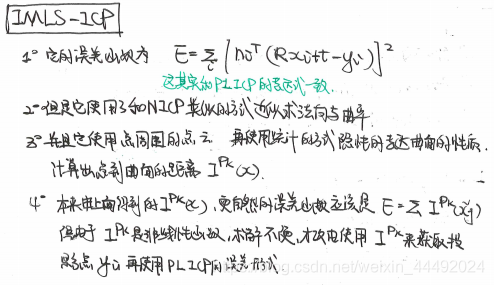 IMLS-ICP
1° 它的误差函数为 E=Σi [niᵀ(Rxi+t-yi)]²
这其实和PLICP的表达式一致.
2° 但是它使用了和NICP类似的方式近似求法向与曲率.
3° 并且它使用点周围的点云 再使用统计的方式隐性的表达曲面的性质.
计算出点到曲面的距离 I^Pk(x).
4° 本来由上面得到的I^Pk(x), 更自然的误差函数应该是 E=Σ I^Pk(xj)
但由于 I^Pk 是非线性函数, 求解不便, 才改由使用 I^Pk 来获取投
影点 yi 再使用PLICP的误差形式
https://blog.csdn.net/weixin_44492024